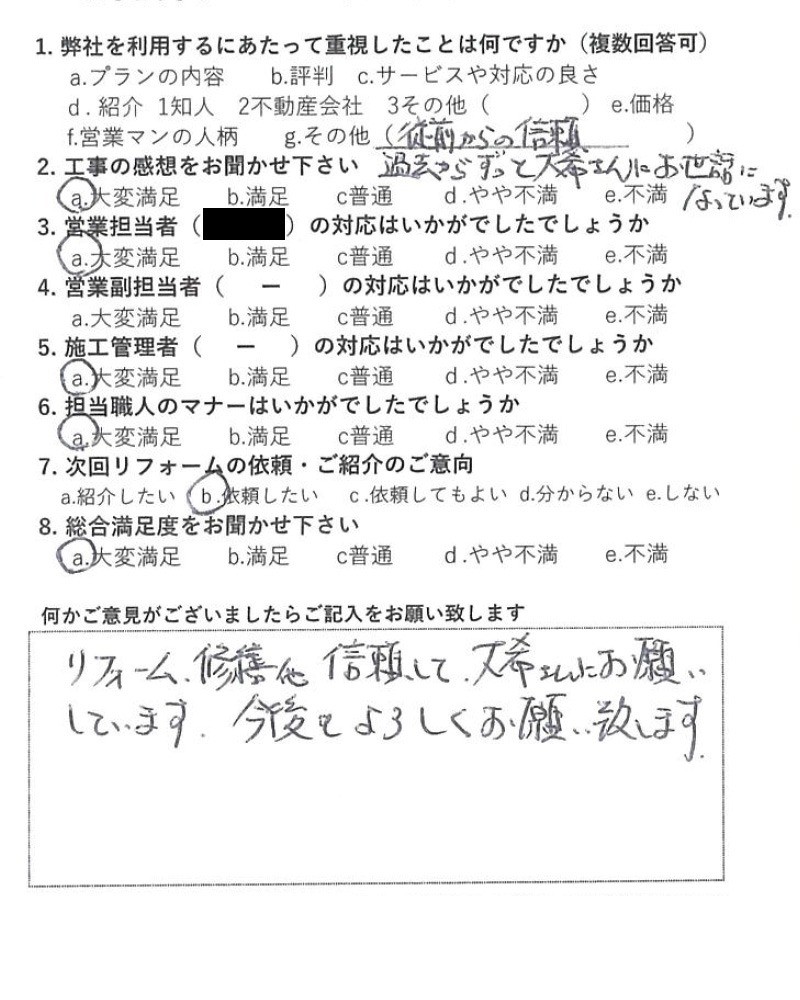 1. 弊社を利用するにあたって重視したことは何ですか（複数回答可）
a.プランの内容 b.評判 c.サービスや対応の良さ
d. 紹介 1知人 2不動産会社 3その他（ ） e.価格
f.営業マンの人柄 g.その他（従前からの信頼 ）
過去からずっと大希さんにお世話に
なっています.
2. 工事の感想をお聞かせ下さい
a.大変満足 b.満足 c普通 d.やや不満 e.不満
3. 営業担当者（ ）の対応はいかがでしたでしょうか
a.大変満足 b.満足 c普通 d.やや不満 e.不満
4. 営業副担当者（ ー ）の対応はいかがでしたでしょうか
a.大変満足 b.満足 c普通 d.やや不満 e.不満
5. 施工管理者（ ー ）の対応はいかがでしたでしょうか
a.大変満足 b.満足 c普通 d.やや不満 e.不満
6. 担当職人のマナーはいかがでしたでしょうか
a.大変満足 b.満足 c普通 d.やや不満 e.不満
7. 次回リフォームの依頼・ご紹介のご意向
a.紹介したい b.依頼したい c.依頼してもよい d.分からない e.しない
8. 総合満足度をお聞かせ下さい
a.大変満足 b.満足 c普通 d.やや不満 e.不満
何かご意見がございましたらご記入をお願い致します
リフォーム、修繕他 信頼して、大希さんにお願い
しています. 今後もよろしくお願い致します.